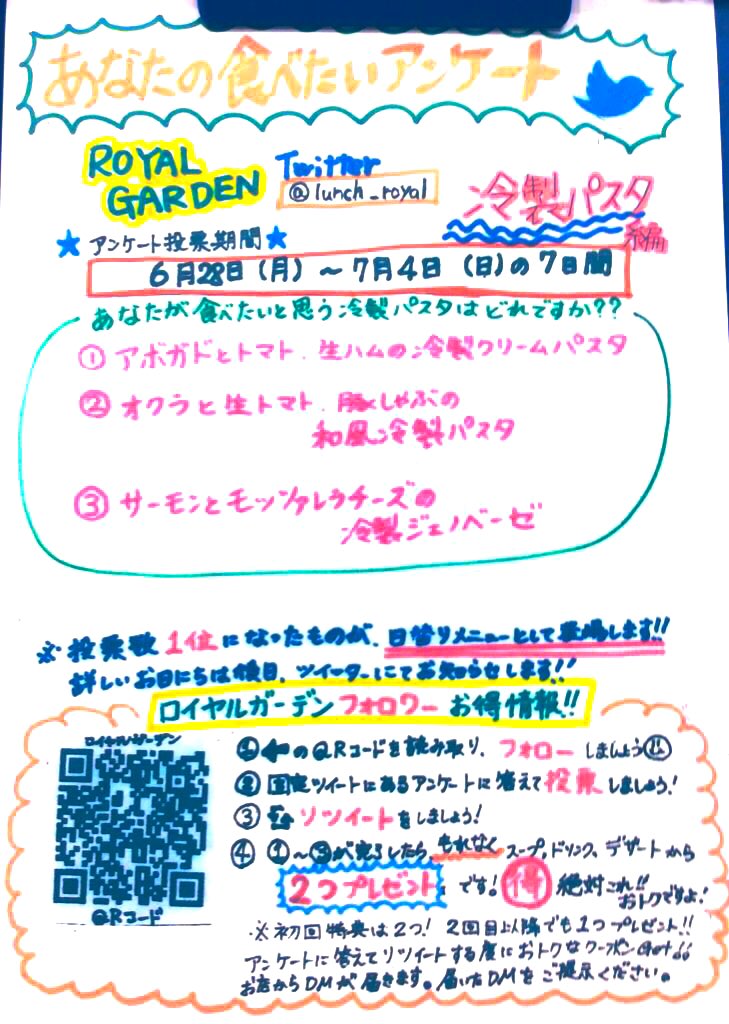 あなたの食べたいアンケート
ROYAL GARDEN
Twitter
@lunch_royal
冷製パスタ編
★アンケート投票期間★
6月28日(月)～7月4日(日)の7日間
あなたが食べたいと思う冷製パスタはどれですか??
① アボガドとトマト、生ハムの冷製クリームパスタ
② オクラと生トマト、豚しゃぶの
和風冷製パスタ
③ サーモンとモッツァレラチーズの
冷製ジェノベーゼ
※投票数1位になったものが、日替りメニューとして登場します!!
詳しいお日にちは後日、ツイーターにてお知らせします!!
ロイヤルガーデンフォロワーお得情報!!
ロイヤルガーデン
QRコード
①←のQRコードを読み取り、フォローしましょう
②固定ツイートにあるアンケートに答えて投票しましょう!
③リツイートをしましょう!
④①～③が完了したら、もれなくスープ、ドリンク、デザートから
2つプレゼントです! 得 絶対これ!!おトクですよ!
※初回特典は2つ! 2回目以降でも1つプレゼント!!
アンケートに答えてリツイートする度におトクなクーポンGet!!
お店からDMが届きます。届いたDMをご提示ください。